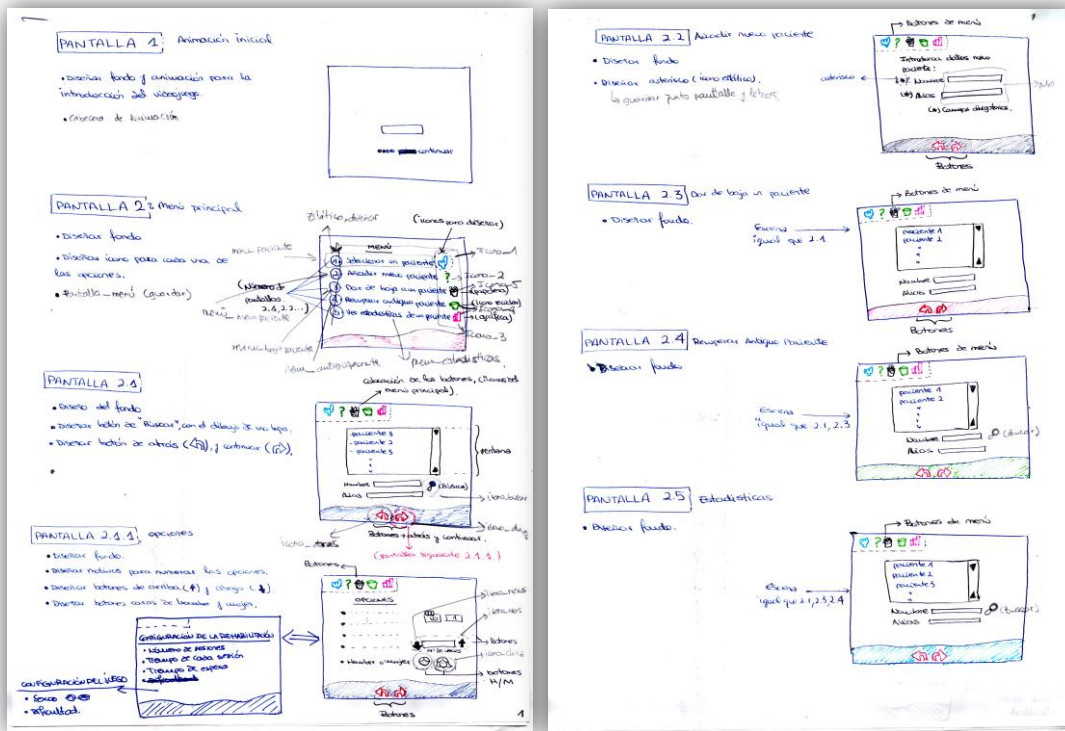 PANTALLA 1: Animación inicial
• Diseñar fondo y animación para la
introducción del videojuego.
• Cabecera de animación
continuar
PANTALLA 2: Menú principal
• Diseñar fondo
• Diseñar icono para cada una de
las opciones.
• Pantalla_menú (guardar)
(iconos para diseñar)
MENÚ
1 Seleccionar un paciente
2 Añadir nuevo paciente
3 Dar de baja a un paciente
4 Recuperar antiguo paciente
5 Ver estadísticas de un paciente
(Número de
pantallas
2.1, 2.2...)
Icono_1
Icono_2
(papelera)
(gráfica)
Icono_3
menu_paciente
menu_estadisticas
PANTALLA 2.1
• Diseño del fondo
• Diseñar botón de "Buscar", con el dibujo de una lupa.
• Diseñar botón de atrás (), y continuar ().
colocación de los botones, (iconos del
menú principal).
- paciente 1
- paciente 2
- paciente 3
ventana
Nombre
Alias
(Buscar)
icono_buscar
icono_atrás
Botones atrás y continuar.
(pantalla siguiente 2.1.1.)
PANTALLA 2.1.1, opciones
• Diseñar fondo.
• Diseñar motivos para numerar las opciones.
• Diseñar botones de arriba (↑) y abajo (↓).
• Diseñar botones caras de hombre y mujer.
Botones
OPCIONES
• Hombre o mujer
Botones
botones
H/M
Botones
CONFIGURACIÓN DE LA REHABILITACIÓN
• Número de sesiones
• Tiempo de cada sesión
• Tiempo de espera
CONFIGURACIÓN DEL JUEGO
• Sexo
• Dificultad.
1
PANTALLA 2.2 Añadir nuevo paciente
• Diseñar fondo
• Diseñar asterisco (icono estático).
guardar junto pantalla y letras
Botones de menú
asterisco
Introduzca datos nuevo
paciente:
(*) Nombre
(*) Alias
(*) Campos obligatorios.
Botones
PANTALLA 2.3 Dar de baja un paciente
• Diseñar fondo.
Botones de menú
Escena
igual que 2.1
paciente 1
paciente 2
Nombre
Alias
Botones
PANTALLA 2.4 Recuperar Antiguo Paciente
Diseñar fondo
Botones de menú
Escena
igual que 2.1, 2.3
paciente 1
paciente 2
Nombre
Alias
(Buscar)
PANTALLA 2.5 Estadísticas
• Diseñar fondo.
Botones de menú
Escena
igual que 2.1, 2.3, 2.4
paciente 1
paciente 2
paciente 3
Nombre
Alias
(Buscar)